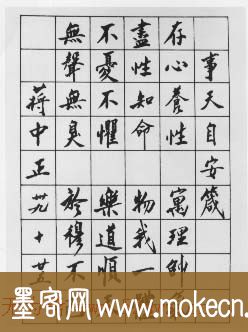 事天自安箴
存心養性 寓理帥
盡性知命 物我一
不憂不懼 樂道順
無聲無臭 於穆不
蔣中正 卅九 十 廿五
墨客网 www.mokecn